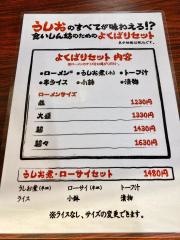 うしおのすべてが味わえる!?
食いしん坊のためのよくばりセット
よくばりセット 内容
•ローメン •うしお煮(小) •トーフ汁
•半ライス •小鉢 •漬物
ローメンサイズ
並 1230円
大盛 1330円
超 1430円
超々 1630円
うしお煮・ローサイセット 1480円
うしお煮(小) ローサイ(小) トーフ汁
ライス 小鉢 漬物
※ライスなし、サイズの変更できます。